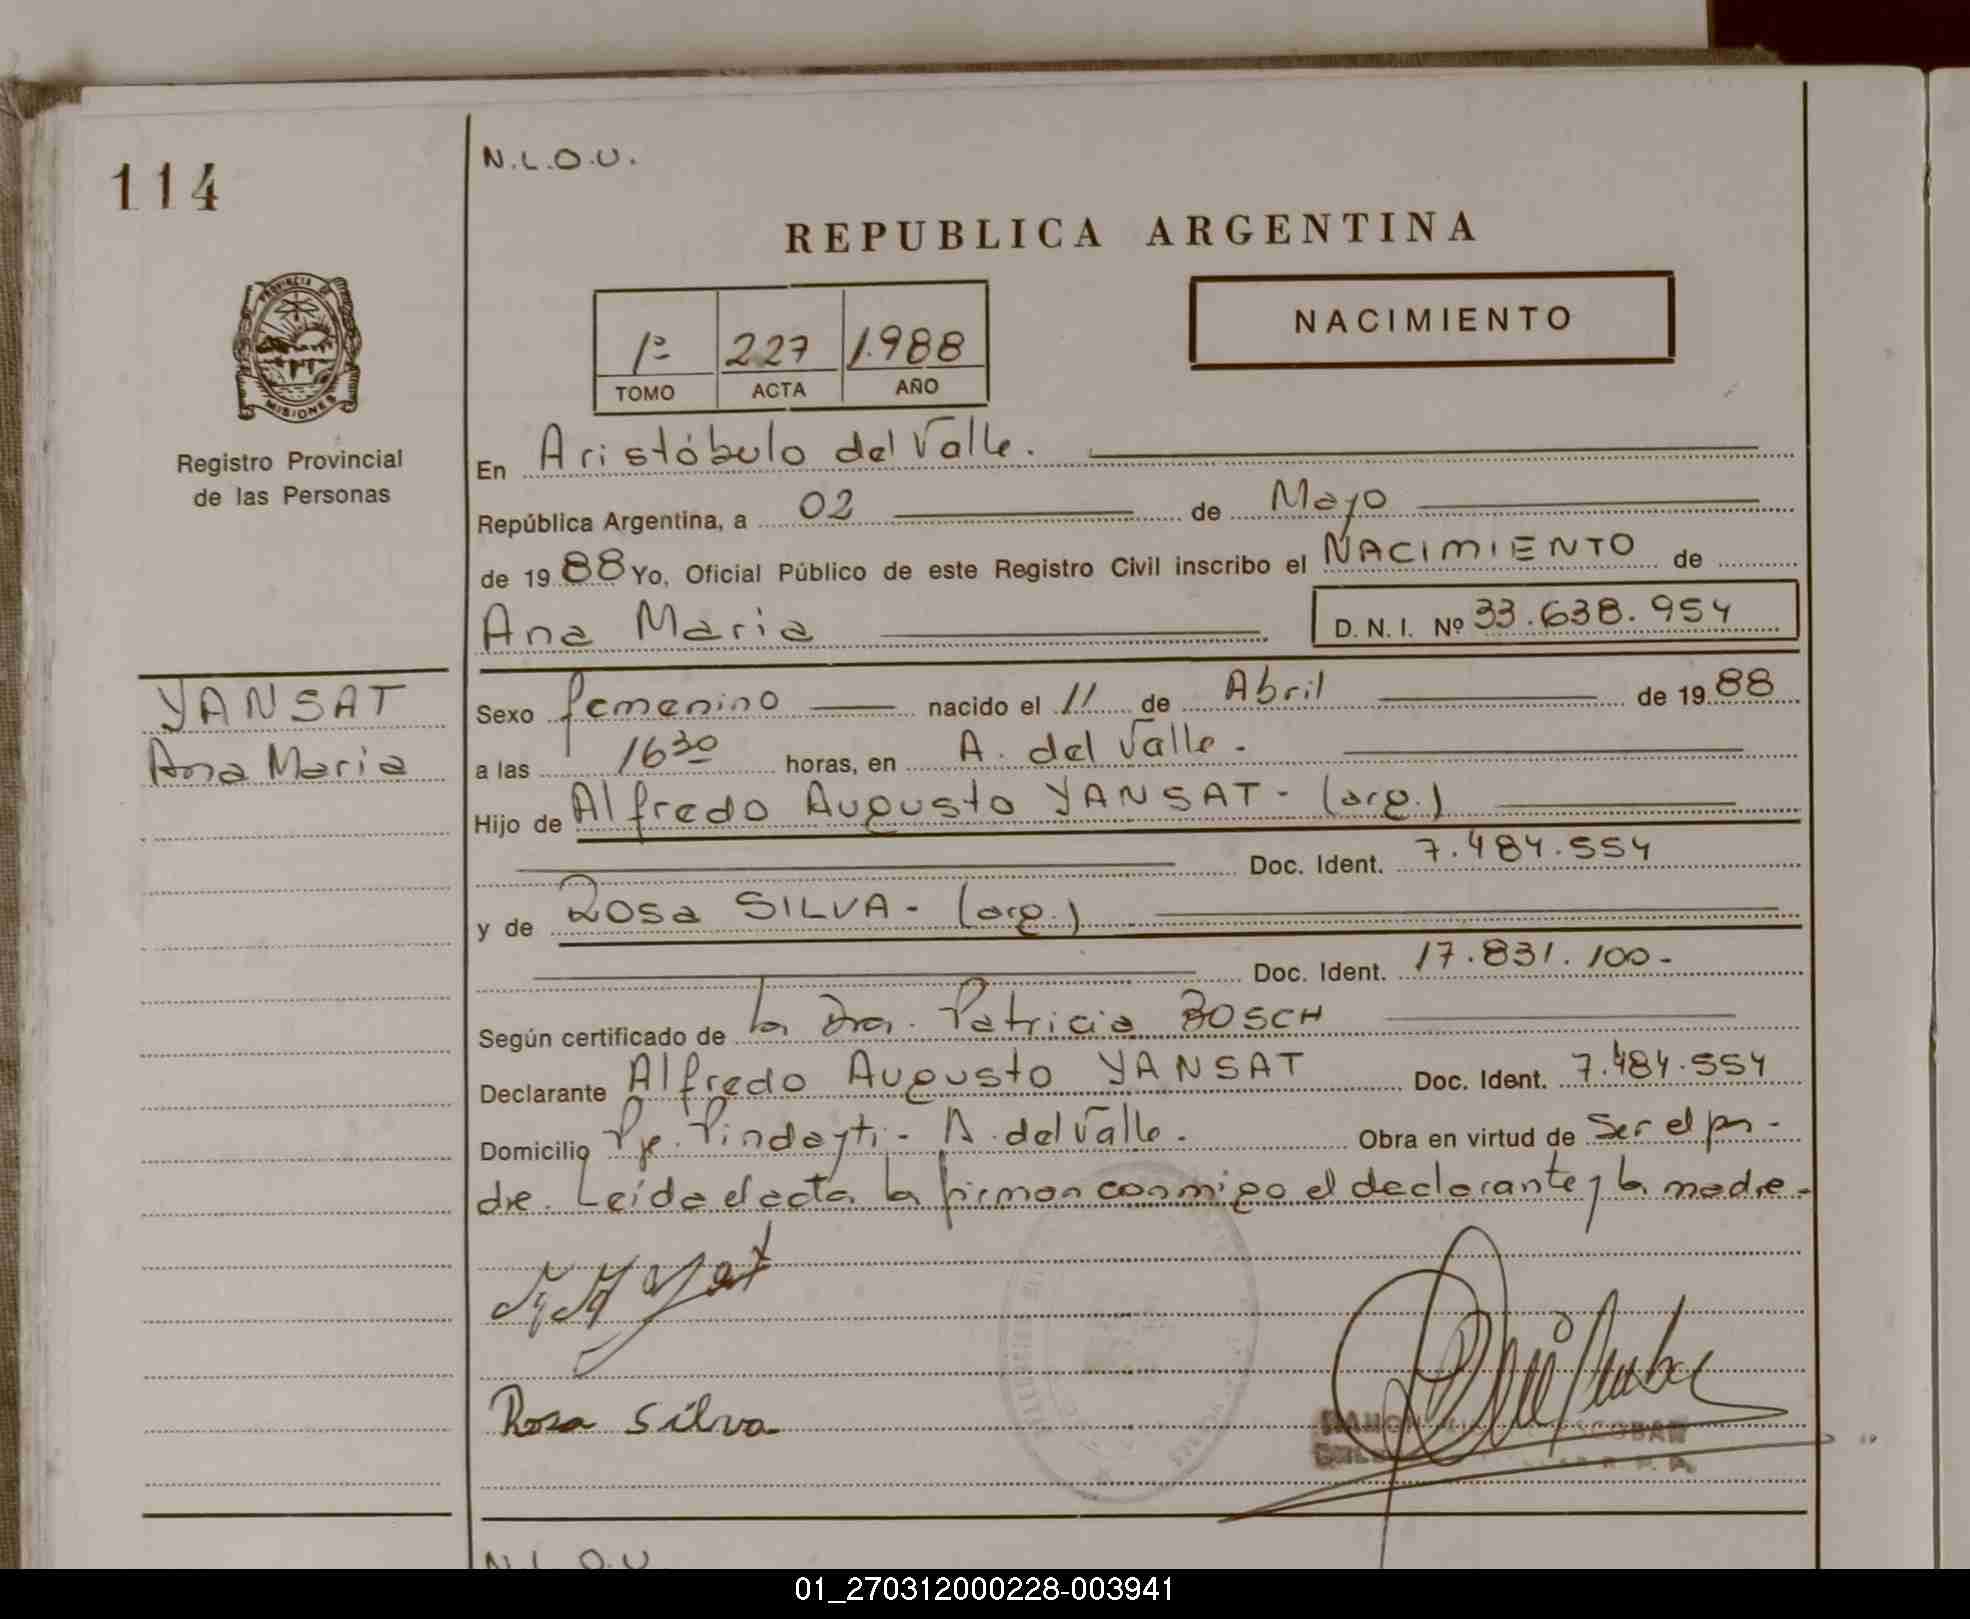 114
N.L.O.U.
REPUBLICA ARGENTINA
PROVINCIA DE
MISIONES
Registro Provincial
de las Personas
1º 227 1.988
TOMO ACTA AÑO
NACIMIENTO
En Aristóbulo del Valle.
República Argentina, a 02 de Mayo
de 19 88 Yo, Oficial Público de este Registro Civil inscribo el NACIMIENTO de
Ana Maria D.N.I. Nº 33.638.954
YANSAT
Ana Maria
Sexo femenino nacido el 11 de Abril de 19 88
a las 16 30 horas, en A. del Valle.
Hijo de Alfredo Augusto YANSAT - (arg.)
Doc. Ident. 7.484.554
y de Rosa SILVA - (arg.)
Doc. Ident. 17.831.100-
Según certificado de la Dra. Patricia BOSCH
Declarante Alfredo Augusto YANSAT Doc. Ident. 7.484.554
Domicilio Pje. Pindayti - A. del Valle. Obra en virtud de ser el pa-
dre. Leída el acta la firman conmigo el declarante y la madre.
Rosa Silva
N.L.O.U.
01_270312000228-003941